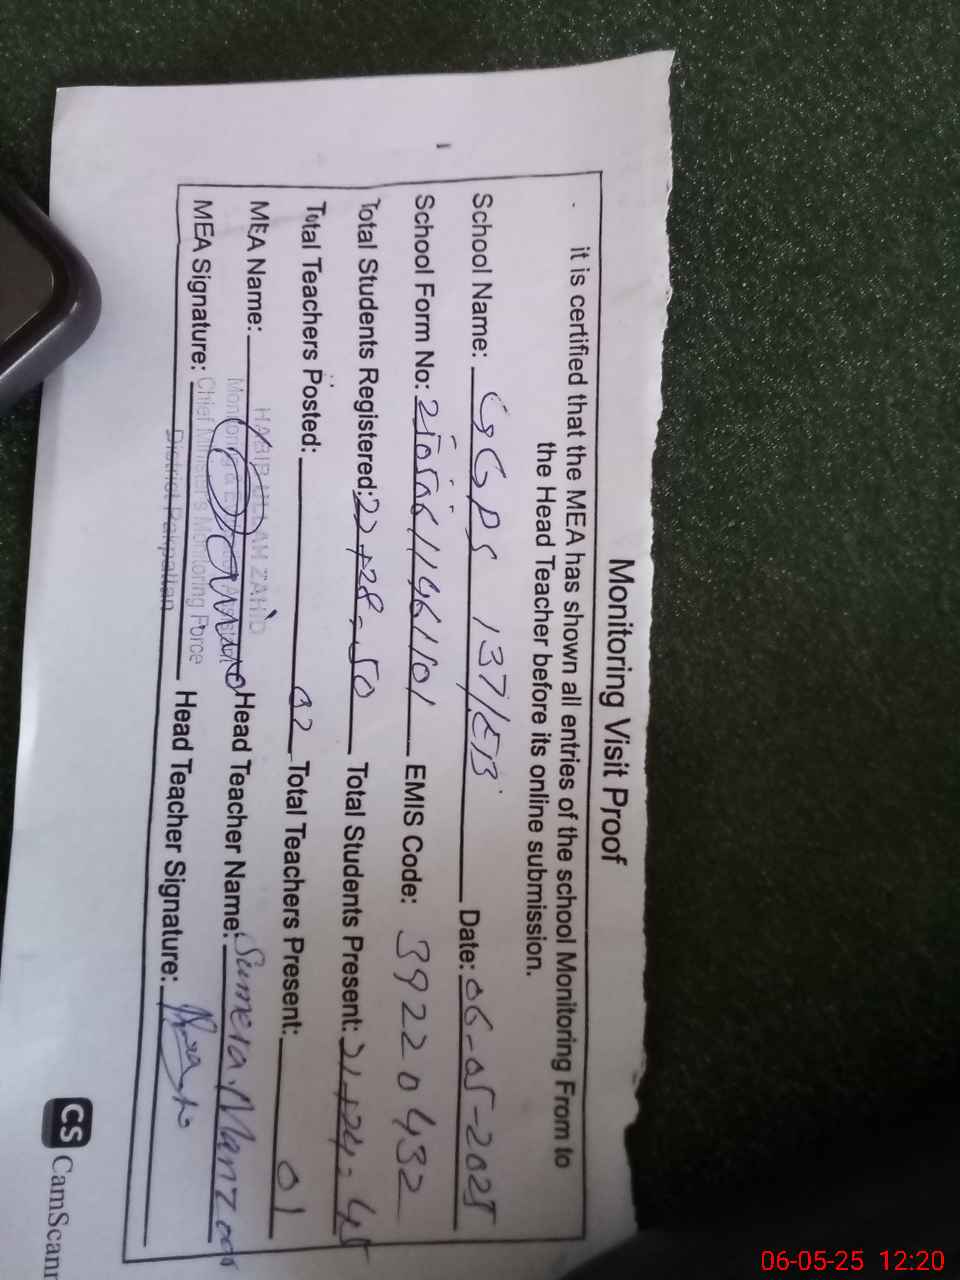 Monitoring Visit Proof
it is certified that the MEA has shown all entries of the school Monitoring From to
the Head Teacher before its online submission.
School Name: GGPS 137/EB Date: 06-05-2025
School Form No: EMIS Code: 39220432
Total Students Registered: 22+28=50 Total Students Present: 21+24=45
Total Teachers Posted: 02 Total Teachers Present: 01
MEA Name: HABIB ULLAH ZAHID Head Teacher Name: Sumera Manzoor
MEA Signature: Chief Minister's Monitoring Force Head Teacher Signature:
District Pakpattan
CS CamScann
06-05-25 12:20